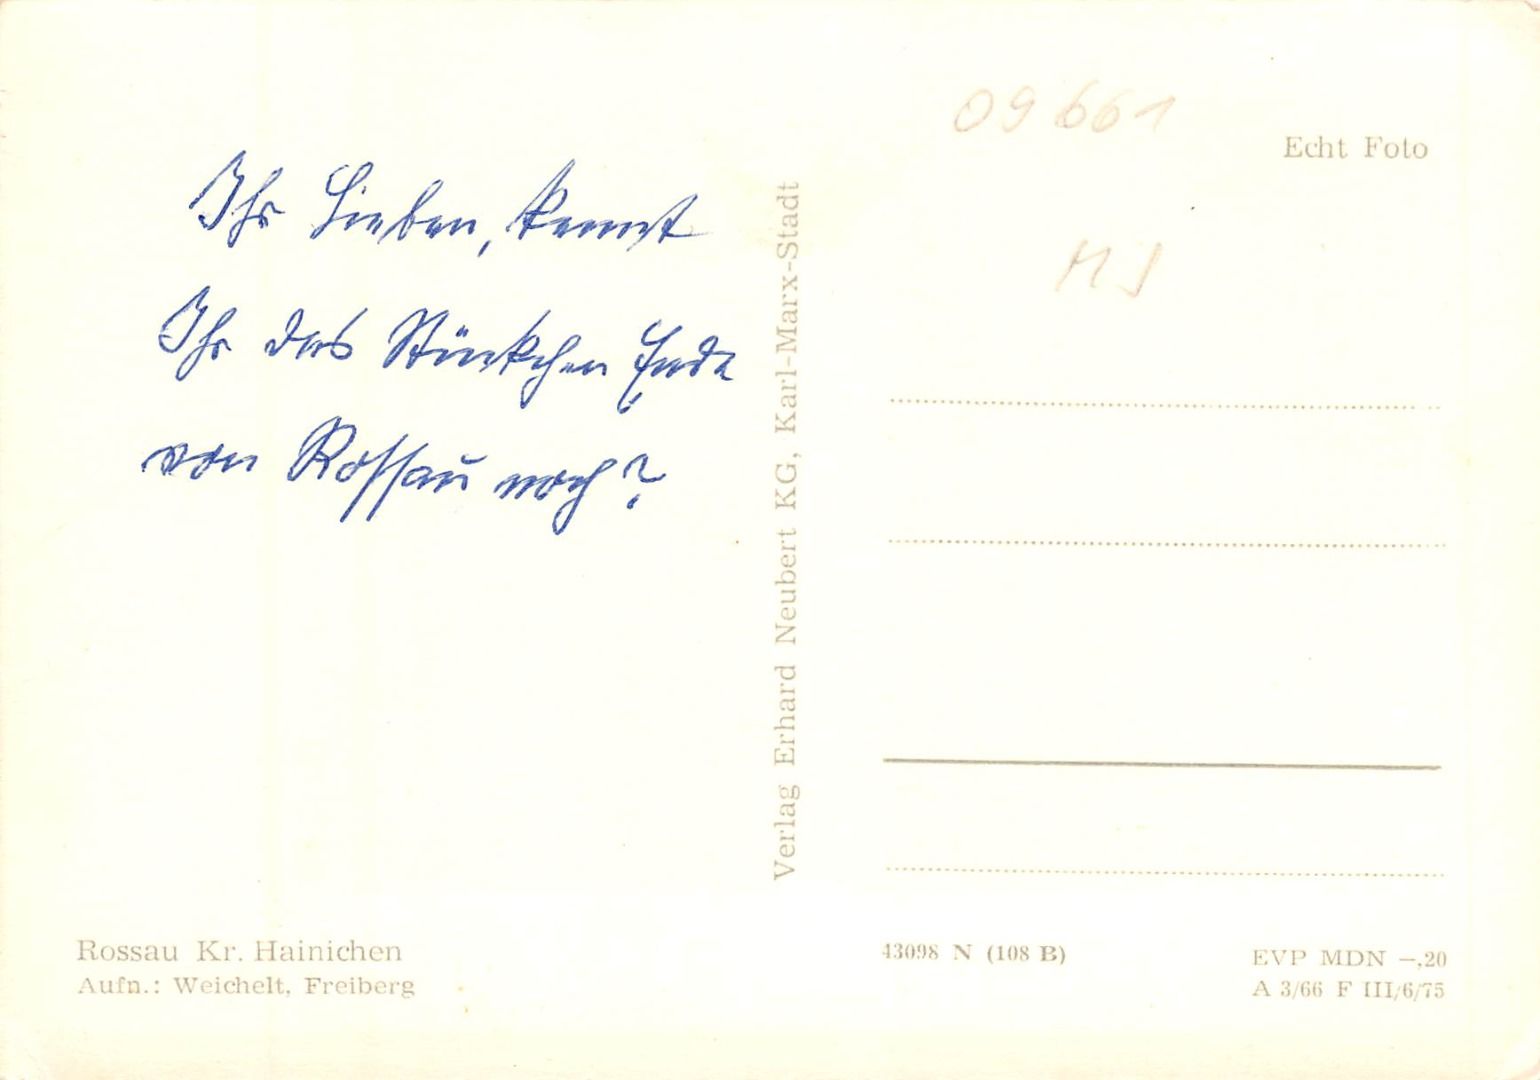 Ihr Lieben, kennt
Ihr das Stückchen Erde
von Rossau noch?
Rossau Kr. Hainichen
Aufn.: Weichelt, Freiberg
Verlag Erhard Neubert KG, Karl-Marx-Stadt
09661
Echt Foto
43098 N (108 B)
EVP MDN –,20
A 3/66 F III/6/75